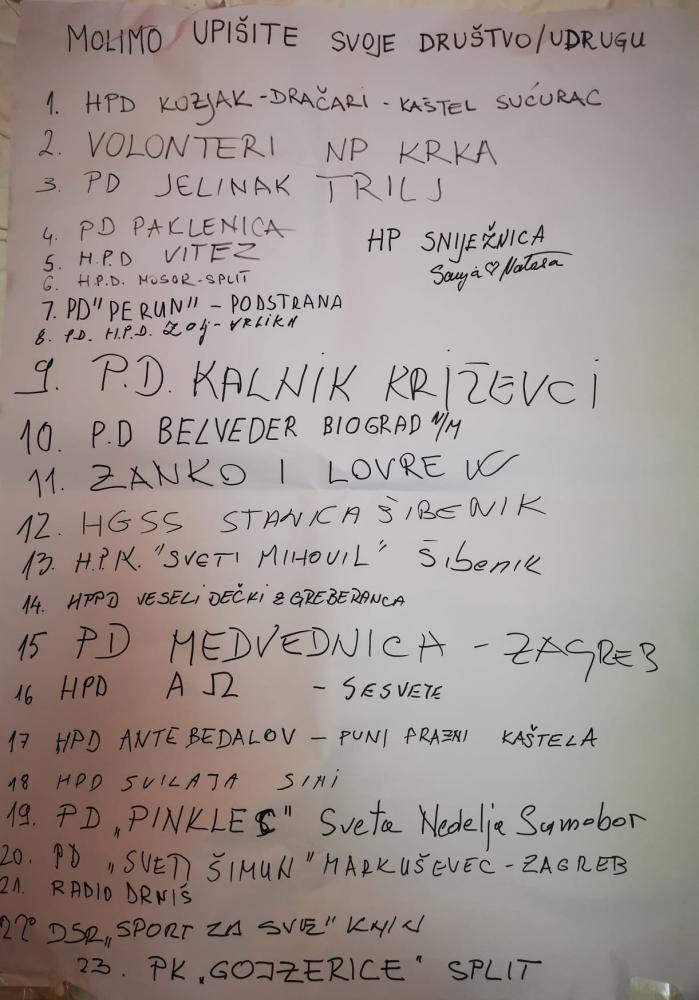 MOLIMO UPIŠITE SVOJE DRUŠTVO/UDRUGU
1. HPD KOZJAK-DRAČARI - KAŠTEL SUĆURAC
2. VOLONTERI NP KRKA
3. PD JELINAK TRILJ
4. PD PAKLENICA
HP SNIJEŽNICA
5. H.P.D VITEZ
Sanja ♡ Nataša
6. H.P.D. MOSOR-SPLIT
7. PD "PERUN" - PODSTRANA
8. P.D. H.P.D. - VRLIKA
9. P.D. KALNIK KRIŽEVCI
10. P.D BELVEDER BIOGRAD N/M
11. ZANKO I LOVRE
12. HGSS STANICA ŠIBENIK
13. H.P.K. "SVETI MIHOVIL" Šibenik
14. HPPD VESELI DEČKI Z GREBERANCA
15 PD MEDVEDNICA - ZAGREB
16 HPD A Ω - SESVETE
17 HPD ANTE BEDALOV - PUNI PRAZNI KAŠTELA
18 HPD SVILAJA SINJ
19. PD „PINKLEC" Sveta Nedelja Samobor
20. PD „SVETI ŠIMUN" MARKUŠEVEC - ZAGREB
21. RADIO DRNIŠ
22° DSR „SPORT ZA SVE" KNIN
23. PK „GOJZERICE" SPLIT